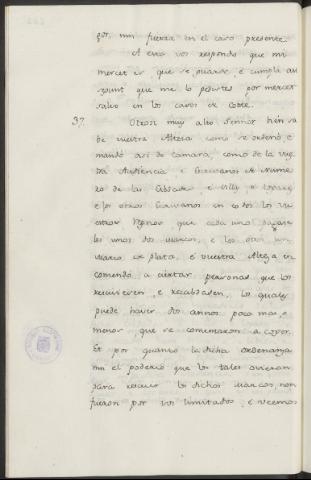 gor, nin fuerza en el caso presente.
A esto vos respondo que mi
merced es que se guarde, e cumpla asi
segunt que me lo pedistes por merced
salvo en los casos de Corte.
37. Otrosi muy alto Sennor bien sa
be vuestra Altesa como se ordenó, e
mandó asi de Camara, como de la vues
tra Audiencia e Escrivanos de Nume
ro de las Cibdades e Villas e Logares
e los otros Escrivanos en todos los vu
estros Regnos, que cada uno pagase
los unos dos marcos, e los otros un
marco de plata, e vuestra Altesa en
comendó a ciertas personas que los
recibiesen e recabdasen, los quales
puede haver dos annos poco mas, o
menor que se comenzaron a coger.
Et por quanto la dicha ordenanza
nin el poderio que los tales ovieron
para recibir los dichos marcos, non
fueron por vos limitados, e veemos